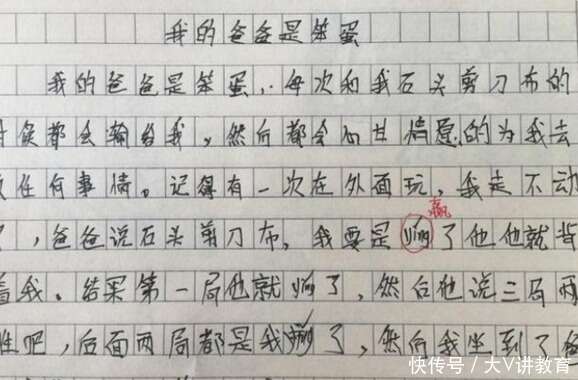 我的爸爸是笨蛋
我的爸爸是笨蛋,每次和我石头剪刀布的
时候都会输给我,然后都会心甘情愿的为我去
任何事情。记得有一次在外面玩,我走不动
赢
了,爸爸说石头剪刀布,我要是ying了他他就背
着我。结果第一局他就ying了,然后他说三局两
胜吧,后面两局都是我ying了,然后我坐到了
快传号/大V讲教育